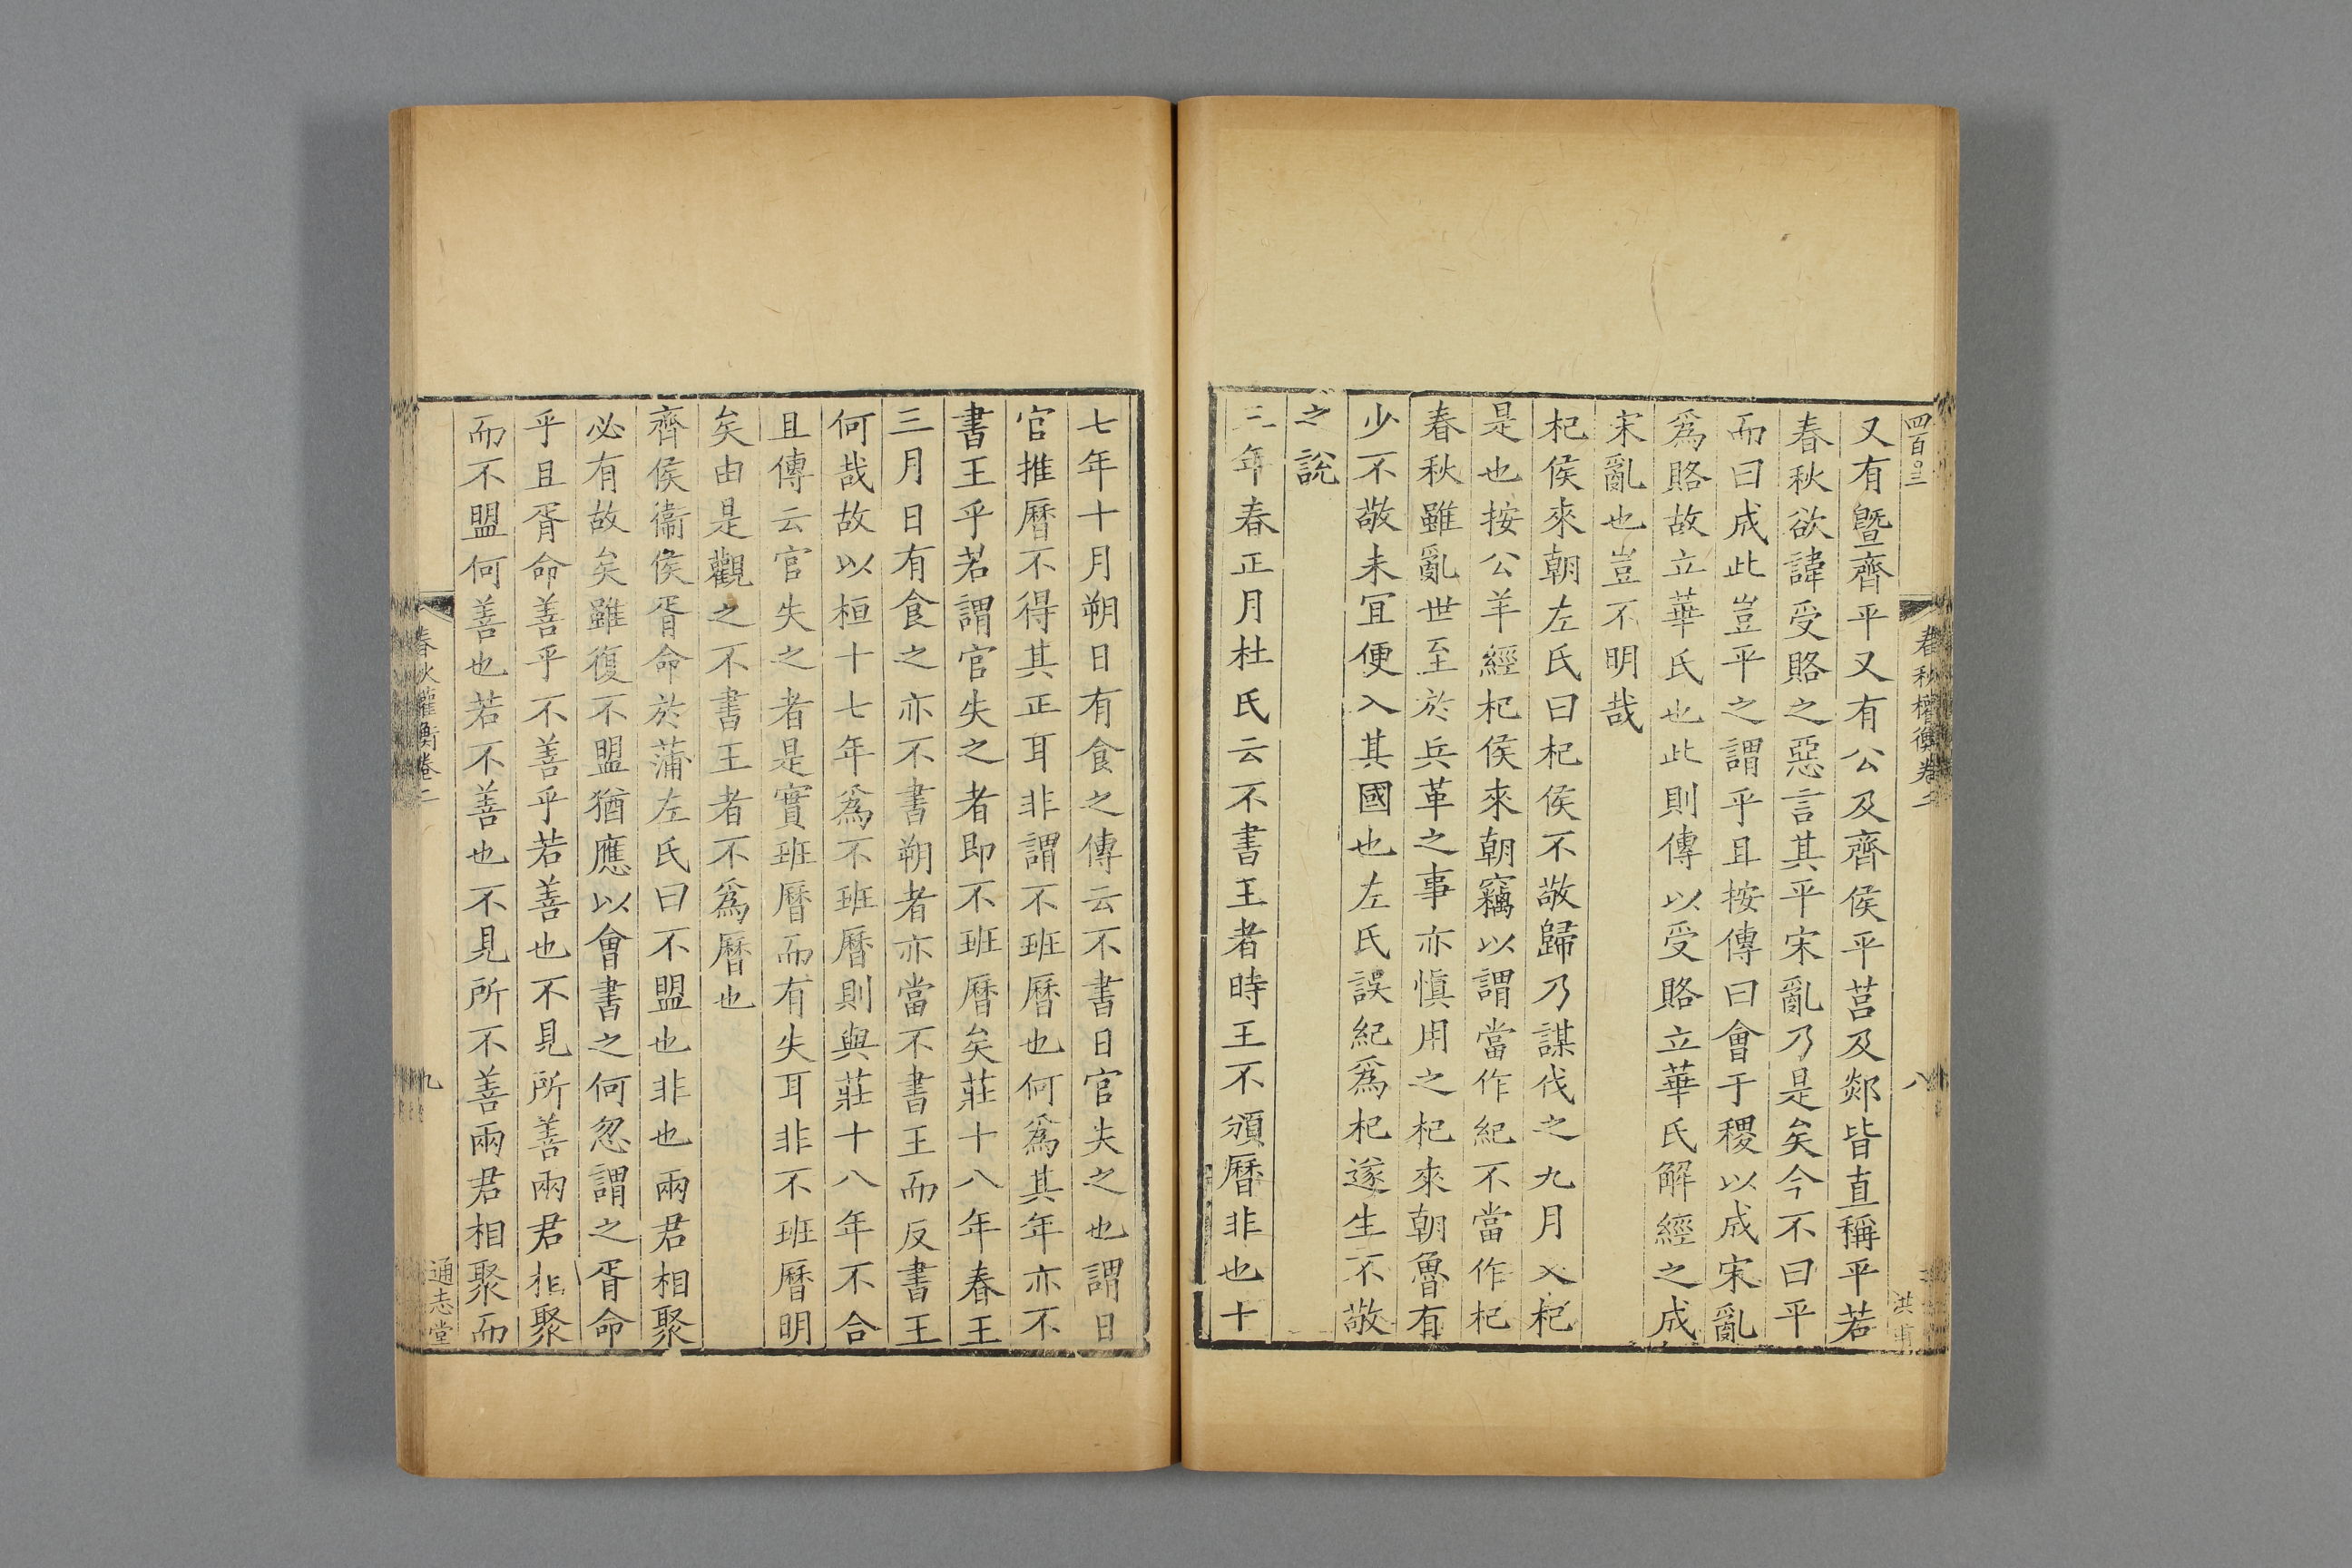 四百三
春秋權衡卷二
八
又有曁齊平又有公及齊侯平莒及郯皆直稱平若
春秋欲諱受賂之惡言其平宋亂乃是矣今不曰平
而曰成此豈平之謂乎且按傳曰會于稷以成宋亂
爲賂故立華氏也此則傳以受賂立華氏解經之成
宋亂也豈不明哉
杞侯來朝左氏曰杞侯不敬歸乃謀伐之九月入杞
是也按公羊經杞侯來朝竊以謂當作紀不當作杞
春秋雖亂世至於兵革之事亦慎用之杞來朝魯有
少不敬未宜便入其國也左氏誤紀爲杞遂生不敬
之說
三年春正月杜氏云不書王者時王不頒曆非也十
七年十月朔日有食之傳云不書日官失之也謂日
官推曆不得其正耳非謂不班曆也何爲其年亦不
書王乎若謂官失之者即不班曆矣莊十八年春王
三月日有食之亦不書朔者亦當不書王而反書王
何哉故以桓十七年爲不班曆則與莊十八年不合
且傳云官失之者是實班曆而有失耳非不班曆明
矣由是觀之不書王者不爲曆也
齊侯衞侯胥命於蒲左氏曰不盟也非也兩君相聚
必有故矣雖復不盟猶應以會書之何忽謂之胥命
乎且胥命善乎不善乎若善也不見所善兩君相聚
而不盟何善也若不善也不見所不善兩君相聚而
春秋權衡卷二
九
通志堂